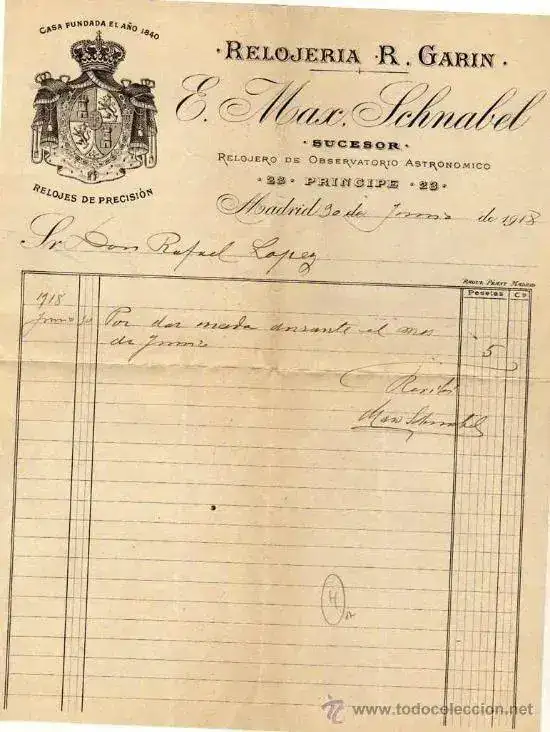 CASA FUNDADA EL AÑO 1840
RELOJES DE PRECISIÓN
· RELOJERIA R. GARIN ·
E. Max. Schnabel
· SUCESOR ·
RELOJERO DE OBSERVATORIO ASTRONOMICO
· 23 · PRINCIPE · 23 ·
Madrid 30 de Junio de 1918
Sr Don Rafael Lopez
Pesetas Cs
1918
Junio 30 Por dar cuerda durante el mes
de Junio 5
Recibí
Max Schnabel
4
www.todocoleccion.net